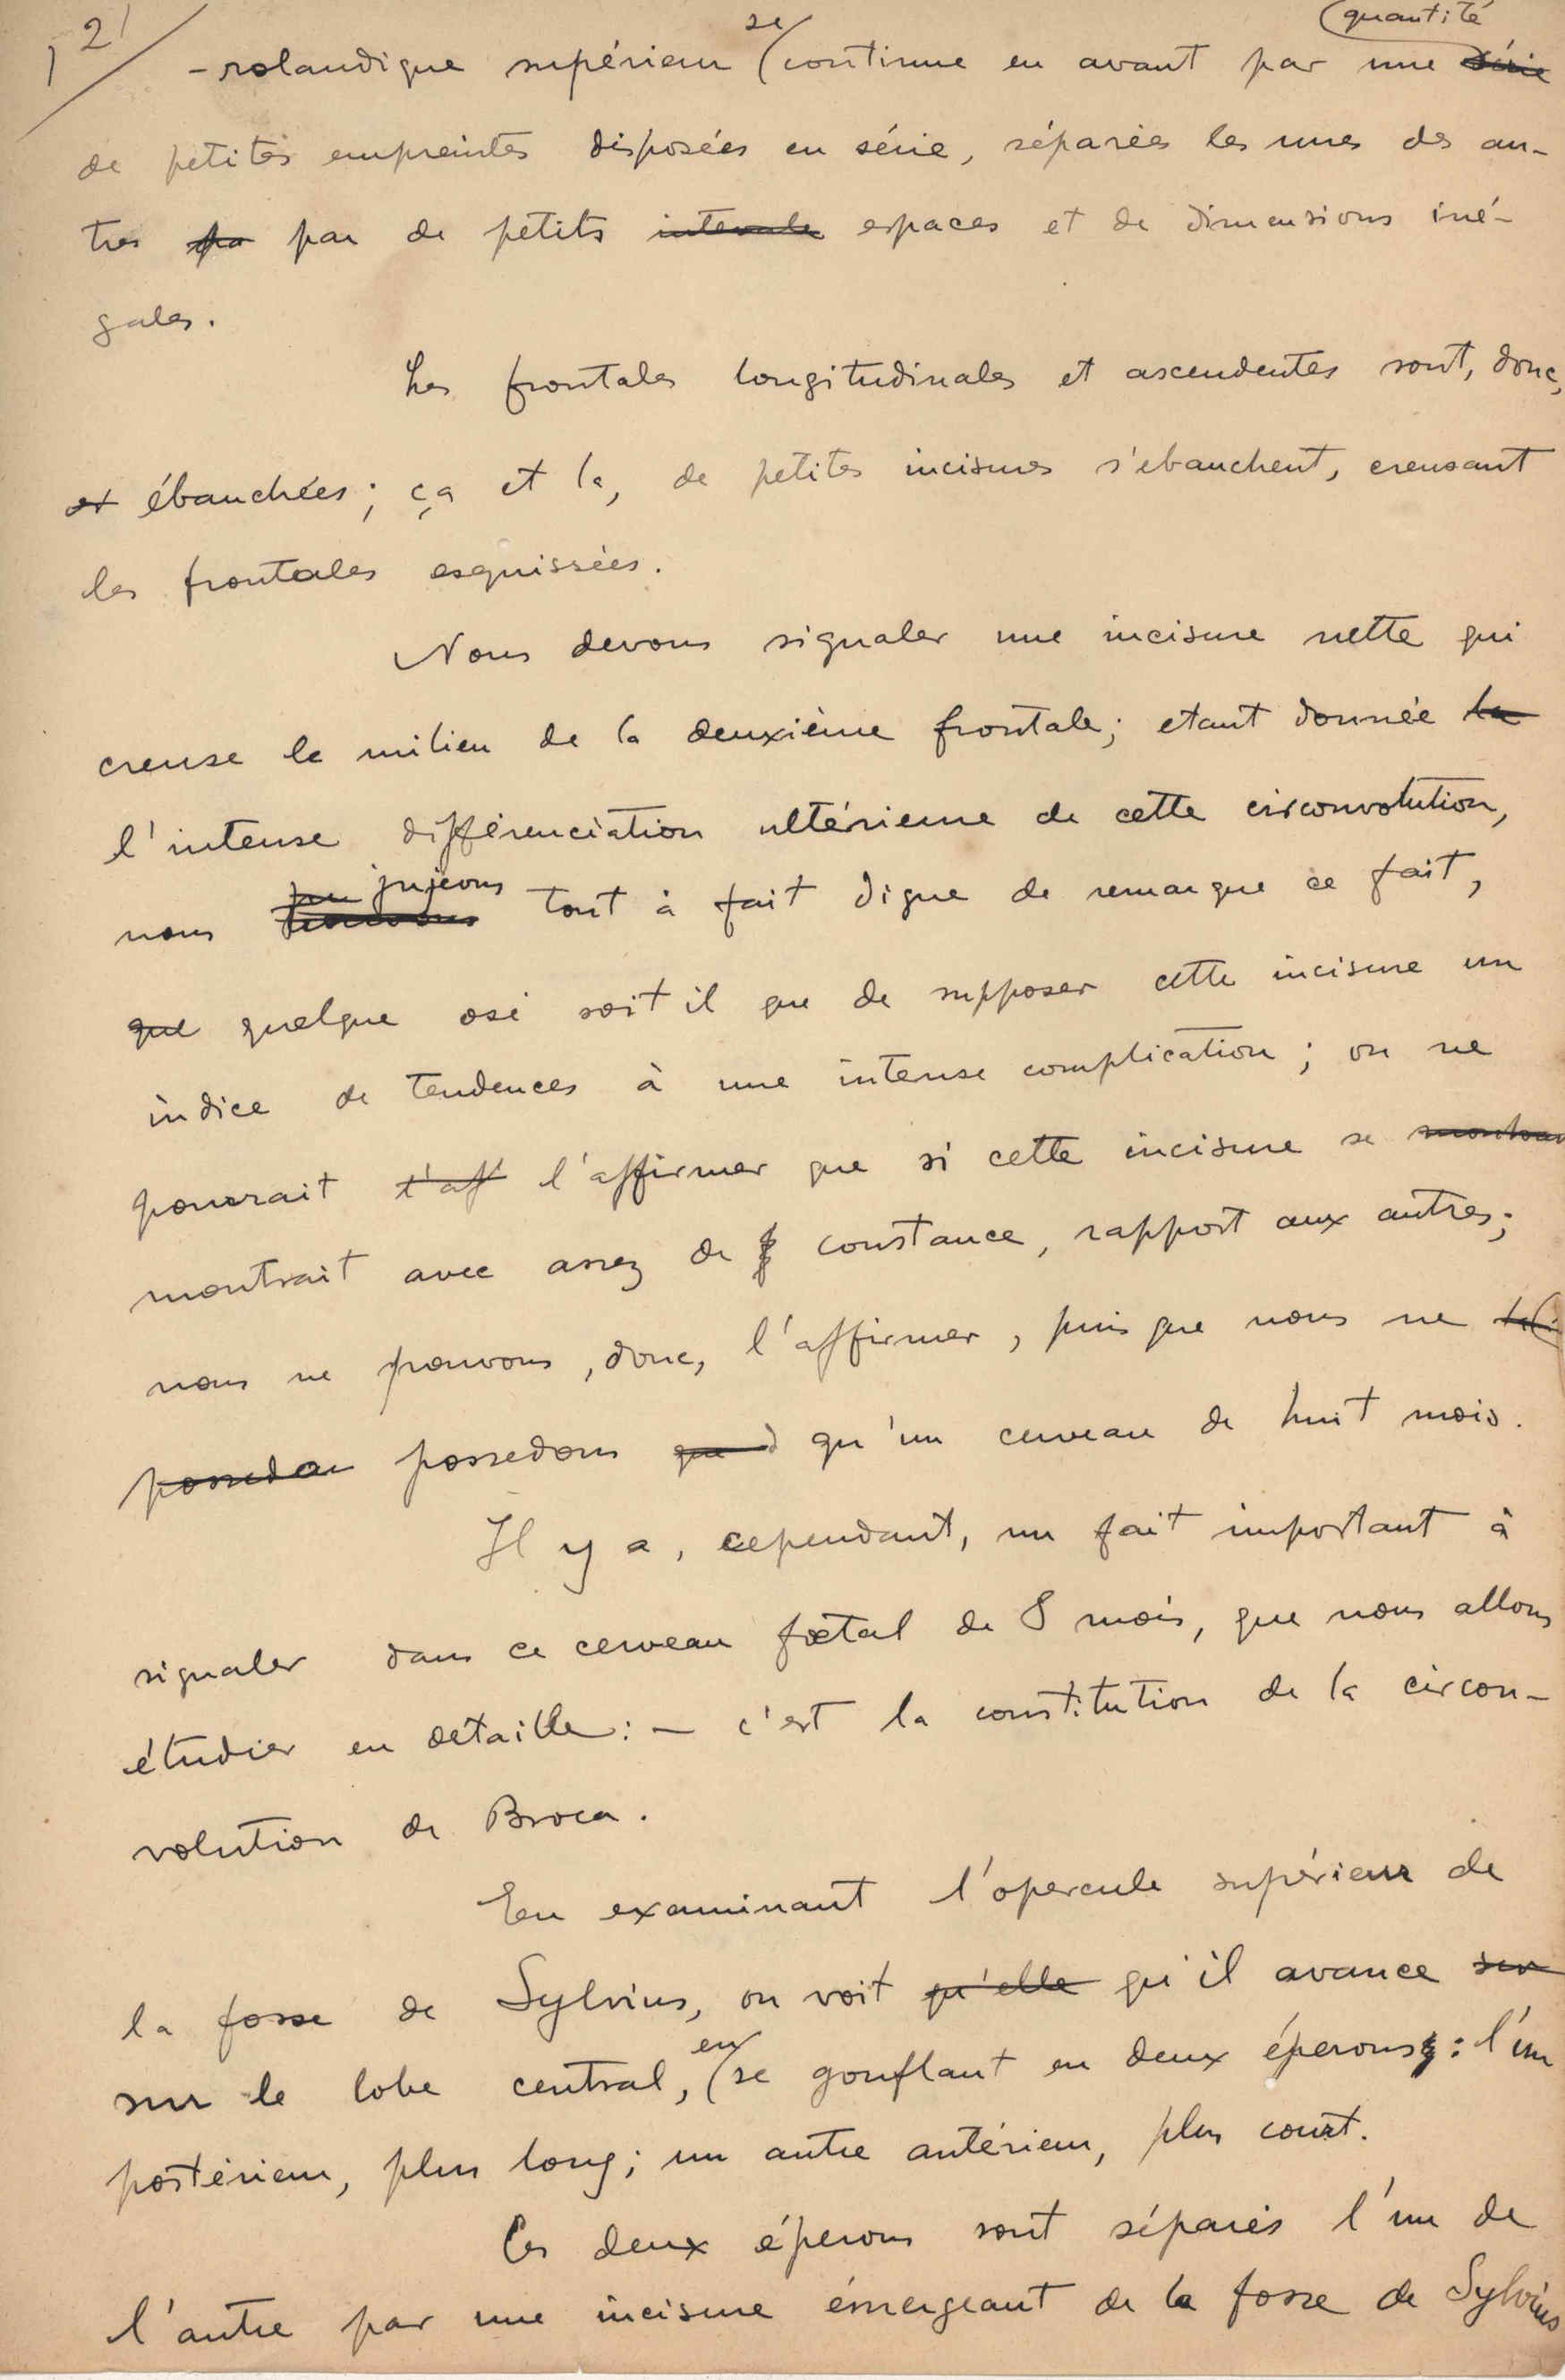 12/
-rolandique supérieur se continue en avant par une quantité série
de petites empreintes disposées en série, séparées les unes des au-
tres pa par de petits intervale espaces et de dimensions iné-
gales.
Les frontales longitudinales et ascendentes sont, donc,
et ébauchées; ça et la, de petites incisures s'ebauchent, creusant
les frontales esquissées.
Nous devons signaler une incisure nette qui
creuse le milieu de la deuxième frontale; etant donnée la
l'intense différenciation ultérieure de cette circonvolution,
nous jujeons tout à fait digne de remarque ce fait,
que quelque osé soit il que de supposer cette incisure un
indice de tendences à une intense complication; on ne
pouvrait l'aff l'affirmer que si cette incisure se
montrait avec assez de constance, rapport aux autres;
nous ne pouvons, donc, l'affirmer, puis que nous ne
possedon possedons que qu'un cerveau de huit mois.
Il y a, cependant, un fait important à
signaler dans ce cerveau fœtal de 8 mois, que nous allons
étudier en detaille: – c'est la constitution de la circon-
volution de Broca.
En examinant l'opercule supérieur de
la fosse de Sylvius, on voit qu'elle qu'il avance sur
sur le lobe central, en se gonflant en deux éperons: l'un
postérieur, plus long; un autre antérieur, plus court.
Ces deux éperons sont séparés l'un de
l'autre par une incisure émergeant de la fosse de Sylvius